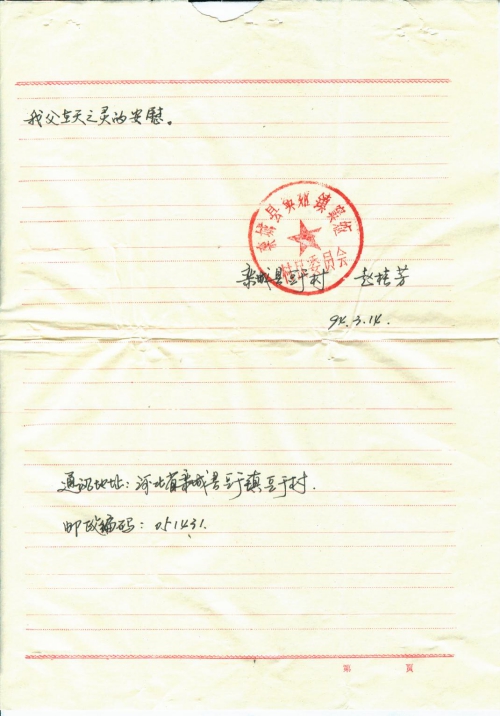 我父在天之灵的安慰。
栾城县
村民委员会
栾城县豆于村 赵桂芳
94.3.14.
通讯地址：河北省栾城县豆于镇豆于村.
邮政编码：051431.
第 页